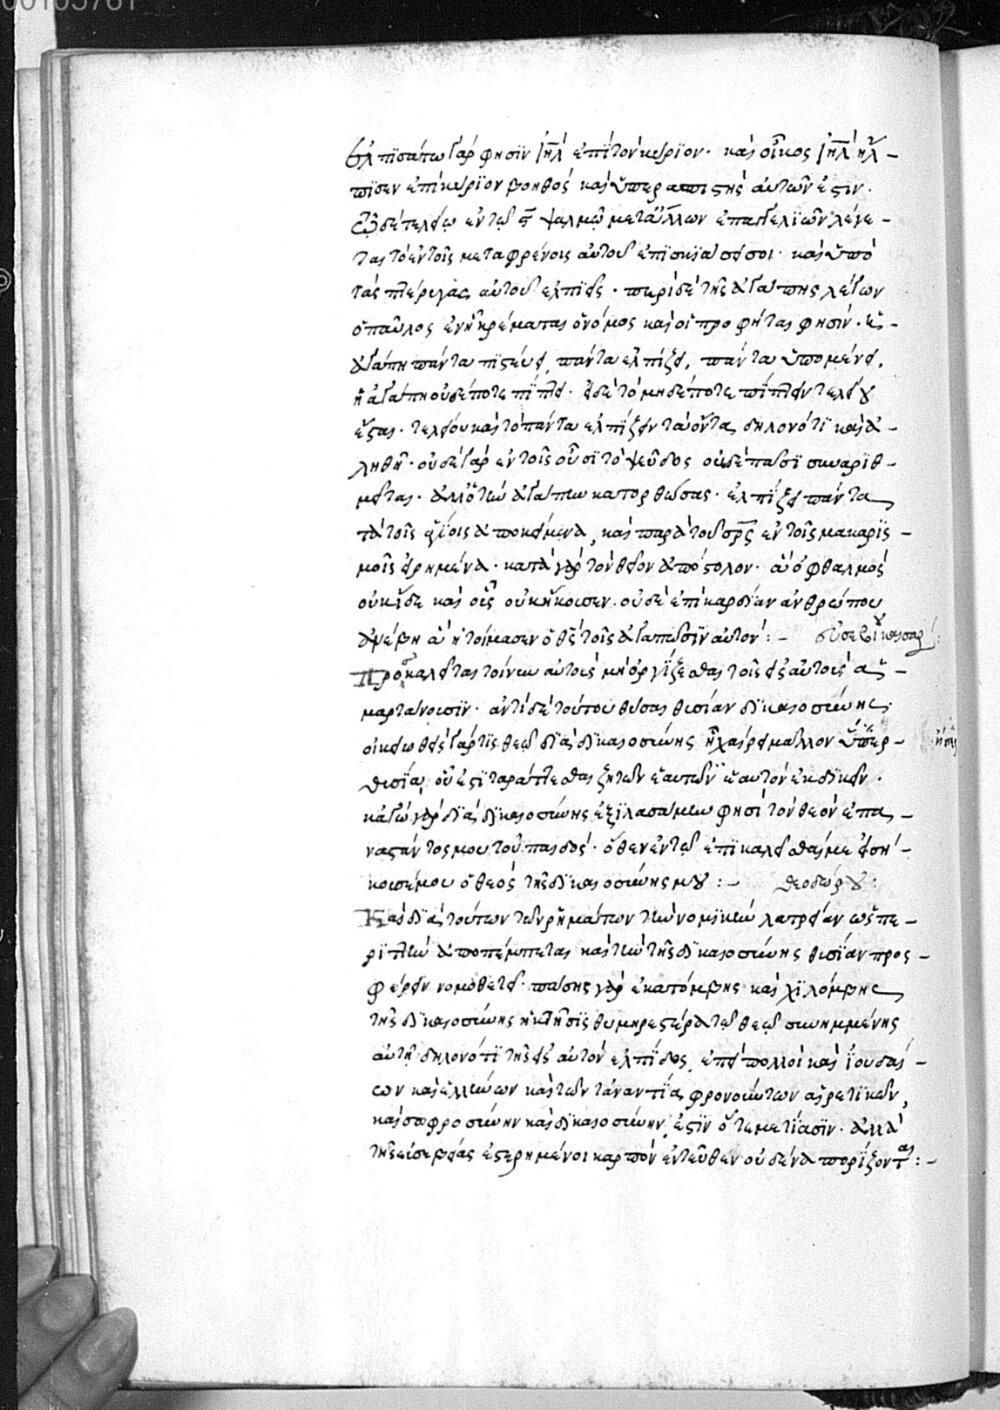 00105761
Ἐλπισάτω γάρ φησιν ἰηλ ἐπὶ τὸν κύριον· καὶ οἶκος ἰηλ ἤλ-
πισεν ἐπὶ κύριον βοηθὸς καὶ ὑπερασπιστὴς αὐτῶν ἐστιν.
ἐν τῷ ψαλμῷ μετὰ ἄλλων ἐπαγγελιῶν λέγε-
ται τὸ ἐν τοῖς μεταφρένοις αὐτοῦ ἐπισκιάσει σοι· καὶ ὑπὸ
τὰς πτέρυγας αὐτοῦ ἐλπιεῖς· περὶ δὲ τῆς ἀγάπης λέγων
ὁ παῦλος ἐν ᾗ κρέμαται ὁ νόμος καὶ οἱ προφῆται φησίν· ἡ
ἀγάπη πάντα πιστεύει, πάντα ἐλπίζει, πάντα ὑπομένει,
ἡ ἀγάπη οὐδέποτε πίπτει· εἰ δὲ τὸ μηδέποτε πίπτειν τελείου
ἐστι· τελείου καὶ τὸ πάντα ἐλπίζειν τὰ ὄντα δηλονότι καὶ ἀ-
ληθῆ· οὐδὲ γὰρ ἐν τοῖς οὖσι τὸ ψεῦδος οὐδέπω συναριθ-
μεῖται· ἀλλ' ὁ τὴν ἀγάπην κατορθώσας· ἐλπίζει πάντα
τὰ τοῖς ἁγίοις ἀποκείμενα, καὶ παρὰ τοῦ σρς ἐν τοῖς μακαρισ-
μοῖς εἰρημένα· κατὰ γὰρ τὸν θεῖον ἀπόστολον· ἃ ὀφθαλμὸς
οὐκ εἶδε καὶ οὖς οὐκ ἤκουσεν· οὐδὲ ἐπὶ καρδίαν ἀνθρώπου
ἀνέβη ἃ ἡτοίμασεν ὁ θς τοῖς ἀγαπῶσιν αὐτόν :- εὐσεβίου καισαρ :
Προκαλεῖται τοίνυν αὐτοὺς μὴ ὀργίζεσθαι τοῖς εἰς αὐτοὺς ἁ-
μαρτάνουσιν· ἀντὶ δὲ τούτου θῦσαι θυσίαν δικαιοσύνης·
οἰκειωθεὶς γάρ τις θεῷ διὰ δικαιοσύνης χαίρει μᾶλλον ὑπὲρ-
θυσία οὐ ἐπιταράττεσθαι ζητῶν ἑαυτῶν ἑαυτὸν ἐκδικεῖν·
κἀγὼ γὰρ διὰ δικαιοσύνης ἐξιλασάμην φησὶ τὸν θεὸν ἐπα-
ναστάντος μου τοῦ παιδός· ὅθεν ἐν τῷ ἐπικαλεῖσθαί με εἰσή-
κουσέ μου ὁ θεὸς τῆς δικαιοσύνης μου :- θεοδώρου :
Καὶ διὰ τούτων τῶν ῥημάτων τὴν νομικὴν λατρείαν ὡς πε-
ριττὴν ἀποπέμπεται καὶ τὴν τῆς δικαιοσύνης θυσίαν προσ-
φέρειν νομοθετεῖ· πάσης γὰρ ἑκατόμβης καὶ χιλιόμβης
τῆς δικαιοσύνης ἡ κτῆσις θυμηρεστέρα τῷ θεῷ συνημμένης
αὐτῇ δηλονότι τῆς εἰς αὐτὸν ἐλπίδος, ἐπεὶ πολλοὶ καὶ ἰουδαί-
ων καὶ ἑλλήνων καὶ τῶν τἀναντία φρονούντων αἱρετικῶν,
καὶ σωφροσύνην καὶ δικαιοσύνην ἐστὶν ὅτε μετίασιν· ἀλλὰ
τῆς εὐσεβείας ἐστερημένοι καρπὸν ἐντεῦθεν οὐδένα πορίζονται :-